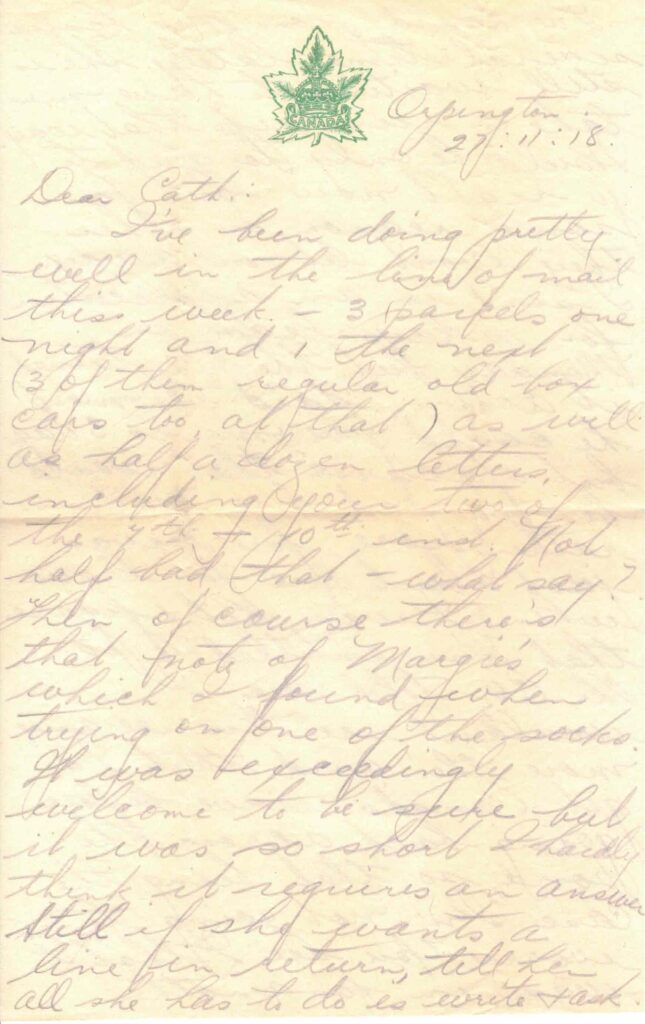 CANADA
Orpington.
27:11:18.
Dear Cath.:
I've been doing pretty
well in the line of mail
this week. - 3 parcels one
night and 1 the next
(3 of them regular old box
cars too, at that) as well
as half a dozen letters,
including your two of
the 7th + 10th inst. Not
half bad that - what say?
Then of course there's
that note of Margie's
which I found when
trying on one of the socks.
It was exceedingly
welcome to be sure but
it was so short I hardly
think it requires an answer
Still if she wants a
line in return, tell her
all she has to do is write + ask.